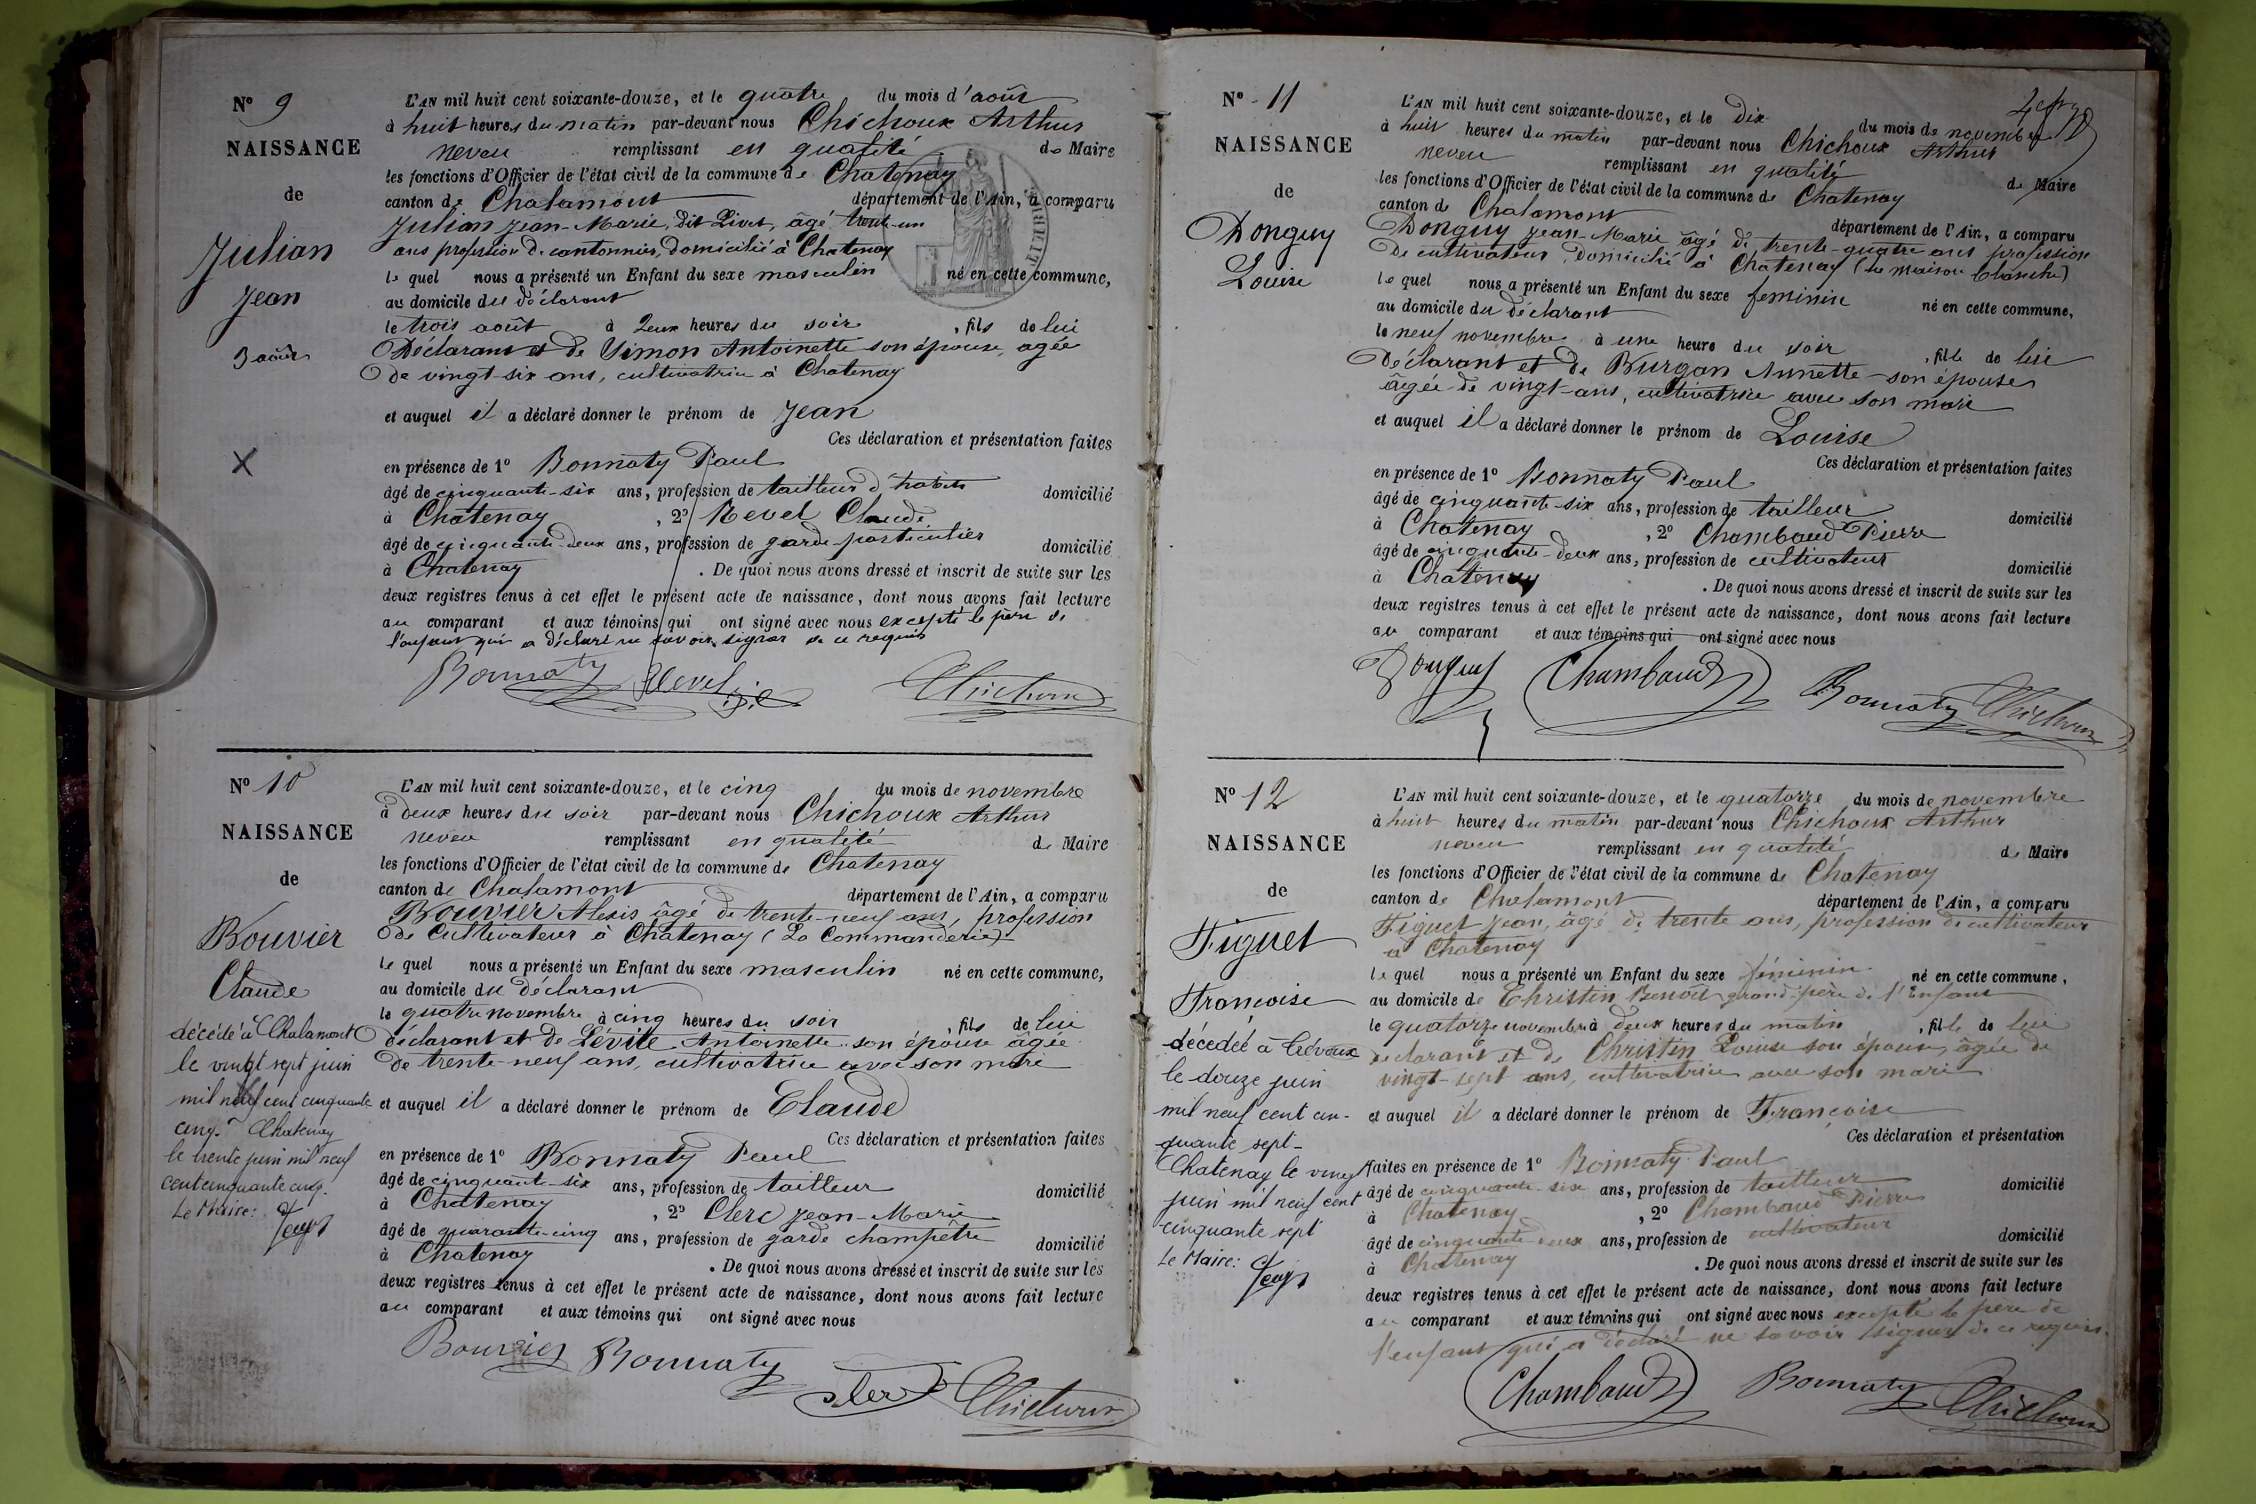 N° 9
NAISSANCE
de
Julian
Jean
3 août
L'AN mil huit cent soixante-douze, et le quatre du mois d'août
à huit heures du matin par-devant nous Chichoux Arthur
neveu remplissant en qualité de Maire
les fonctions d'Officier de l'état civil de la commune de Chatenay
canton de Chalamont département de l'Ain, a comparu
Julian Jean-Marie, dit Livet, âgé trent-un
ans profession de cantonnier, domicilié à Chatenay
le quel nous a présenté un Enfant du sexe masculin né en cette commune,
au domicile du déclarant
le trois août à deux heures du soir, fils de lui
Déclarant et de Simon Antoinette son épouse, agée
de vingt-six ans, cultivatrice à Chatenay
et auquel il a déclaré donner le prénom de Jean
Ces déclaration et présentation faites
X
en présence de 1° Bonnaty Paul
âgé de cinquante-six ans, profession de tailleur d'habits domicilié
à Chatenay, 2° Revel Claude
âgé de cinquante-deux ans, profession de garde-particulier domicilié
à Chatenay. De quoi nous avons dressé et inscrit de suite sur les
deux registres tenus à cet effet le présent acte de naissance, dont nous avons fait lecture
au comparant et aux témoins qui ont signé avec nous excepté le père de
l'enfant qui a déclaré ne savoir signer de ce requis
Bonnaty Revel Chichoux
N° 10
NAISSANCE
de
Bouvier
Claude
décédé à Chalamont
le vingt sept juin
mil neuf cent cinquante
cinq. Chatenay
le trente juin mil neuf
cent cinquante cinq.
Le Maire:
L'AN mil huit cent soixante-douze, et le cinq du mois de novembre
à deux heures du soir par-devant nous Chichoux Arthur
neveu remplissant en qualité de Maire
les fonctions d'Officier de l'état civil de la commune de Chatenay
canton de Chalamont département de l'Ain, a comparu
Bouvier Alexis âgé de trente-neuf ans, profession
de cultivateur à Chatenay (La Commanderie)
le quel nous a présenté un Enfant du sexe masculin né en cette commune,
au domicile du déclarant
le quatre novembre à cinq heures du soir, fils de lui
déclarant et de Lévite Antoinette son épouse âgée
de trente-neuf ans, cultivatrice avec son mari
et auquel il a déclaré donner le prénom de Claude
Ces déclaration et présentation faites
en présence de 1° Bonnaty Paul
âgé de cinquante-six ans, profession de tailleur domicilié
à Chatenay, 2° Clerc Jean-Marie
âgé de quarante-cinq ans, profession de garde champêtre domicilié
à Chatenay. De quoi nous avons dressé et inscrit de suite sur les
deux registres tenus à cet effet le présent acte de naissance, dont nous avons fait lecture
au comparant et aux témoins qui ont signé avec nous
Bouvier Bonnaty Clerc Chichoux
N° 11
NAISSANCE
de
Donguy
Louise
L'AN mil huit cent soixante-douze, et le dix du mois de novembre
à huit heures du matin par-devant nous Chichoux Arthur
neveu remplissant en qualité de Maire
les fonctions d'Officier de l'état civil de la commune de Chatenay
canton de Chalamont département de l'Ain, a comparu
Donguy Jean-Marie âgé de trente-quatre ans profession
de cultivateur domicilié à Chatenay (La maison blanche)
le quel nous a présenté un Enfant du sexe feminin né en cette commune,
au domicile du déclarant
le neuf novembre à une heure du soir, fille de lui
déclarant et de Burgon Annette son épouse
âgée de vingt-ans, cultivatrice avec son mari
et auquel il a déclaré donner le prénom de Louise
Ces déclaration et présentation faites
en présence de 1° Bonnaty Paul
âgé de cinquante-six ans, profession de tailleur domicilié
à Chatenay, 2° Chambaud Pierre
âgé de cinquante-deux ans, profession de cultivateur domicilié
à Chatenay. De quoi nous avons dressé et inscrit de suite sur les
deux registres tenus à cet effet le présent acte de naissance, dont nous avons fait lecture
au comparant et aux témoins qui ont signé avec nous
Donguy Chambaud Bonnaty Chichoux
N° 12
NAISSANCE
de
Figuet
Françoise
décédée à Trévoux
le douze juin
mil neuf cent cin-
quante sept-
Chatenay le vingt
juin mil neuf cent
cinquante sept
Le Maire:
L'AN mil huit cent soixante-douze, et le quatorze du mois de novembre
à huit heures du matin par-devant nous Chichoux Arthur
neveu remplissant en qualité de Maire
les fonctions d'Officier de l'état civil de la commune de Chatenay
canton de Chalamont département de l'Ain, a comparu
Figuet Jean, âgé de trente ans, profession de cultivateur
à Chatenay
le quel nous a présenté un Enfant du sexe féminin né en cette commune,
au domicile de Christin Benoit grand-père de l'Enfant
le quatorze novembre à deux heures du matin, fille de lui
declarant et de Christin Louise son épouse, âgée de
vingt-sept ans, cultivatrice avec son mari
et auquel il a déclaré donner le prénom de Françoise
Ces déclaration et présentation
faites en présence de 1° Bonnaty Paul
âgé de cinquante-six ans, profession de tailleur domicilié
à Chatenay, 2° Chambaud Pierre
âgé de cinquante-deux ans, profession de cultivateur domicilié
à Chatenay. De quoi nous avons dressé et inscrit de suite sur les
deux registres tenus à cet effet le présent acte de naissance, dont nous avons fait lecture
au comparant et aux témoins qui ont signé avec nous excepté le père de
l'enfant qui a déclaré ne savoir signer de ce requis.
Chambaud Bonnaty Chichoux